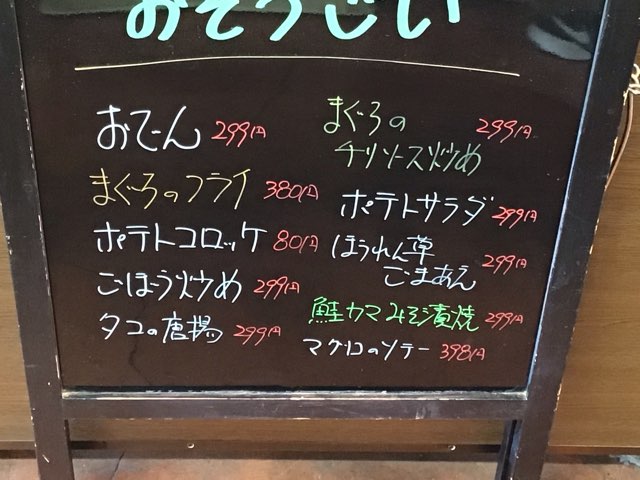 おそうじい
おでん 299円
まぐろのフライ 380円
ポテトコロッケ 80円
ごぼう炒め 299円
タコの唐揚 299円
まぐろの 299円
チリソース炒め
ポテトサラダ 299円
ほうれん草
ごまあえ 299円
鮭カマみそ漬焼 299円
マグロのソテー 398円